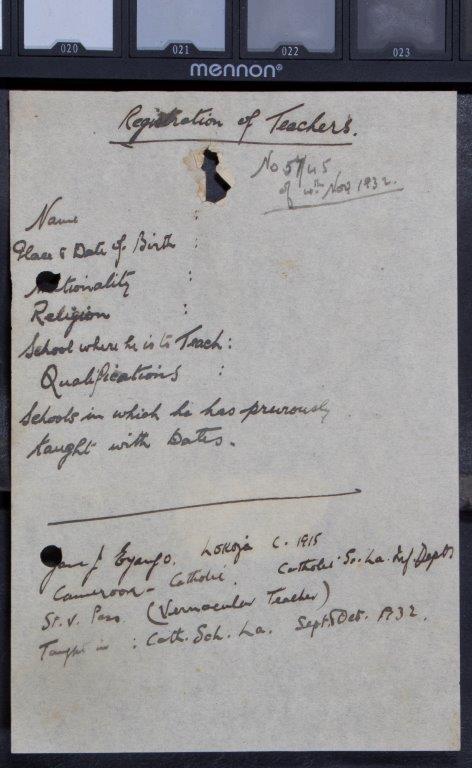 020 021 022 023
mennon®
Registration of Teachers.
No 57/45
of 4th Nov 1932.
Name :
Place & Date of Birth :
Nationality :
Religion :
School where he is to Teach :
Qualifications :
Schools in which he has previously
taught with Dates.
J. Eyango. Lokoja C. 1915
Cameroon - Catholic. Catholic Sc. La. Inf Dept
St. V. Pass. (Vernacular Teacher)
Taught in : Cath. Sch. La. Sept & Dec. 1932.